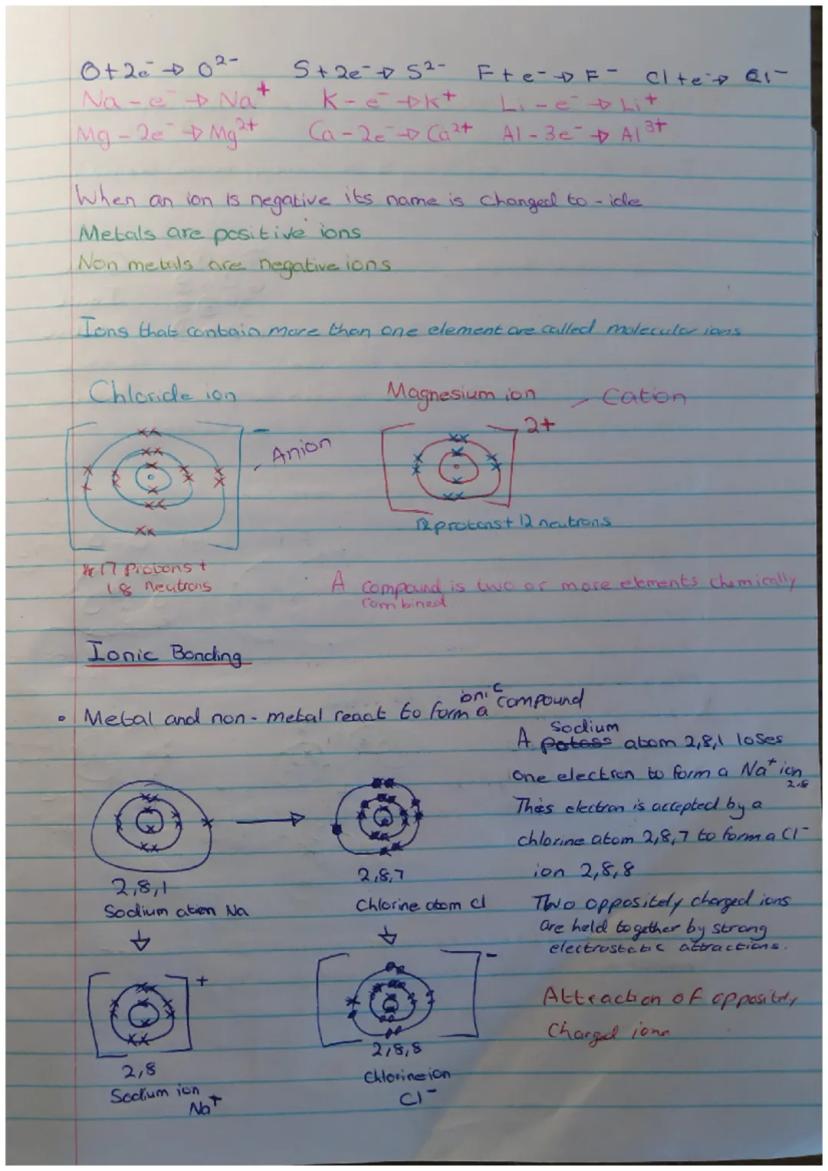 O + 2e⁻ → O²⁻ S + 2e⁻ → S²⁻ F + e⁻ → F⁻ Cl + e⁻ → Cl⁻
Na - e⁻ → Na⁺ K - e⁻ → K⁺ Li - e⁻ → Li⁺
Mg - 2e⁻ → Mg²⁺ Ca - 2e⁻ → Ca²⁺ Al - 3e⁻ → Al³⁺
When an ion is negative its name is changed to -ide
Metals are positive ions
Non metals are negative ions
Ions that contain more than one element are called molecular ions
Chloride ion
-
Anion
17 Protons +
18 neutrons
Magnesium ion - Cation
2+
12 protons + 12 neutrons
A compound is two or more elements chemically
combined
Ionic Bonding
• Metal and non-metal react to form a ionic compound
2,8,1
Sodium atom Na
2,8,7
Chlorine atom Cl
A sodium atom 2,8,1 loses
one electron to form a Na⁺ ion
2.8
This electron is accepted by a
chlorine atom 2,8,7 to form a Cl⁻
ion 2,8,8
Two oppositely charged ions
are held together by strong
electrostatic attractions.
Attraction of oppositely
Charged ions
+
2,8
Sodium ion
Na⁺
-
2,8,8
Chlorine ion
Cl⁻